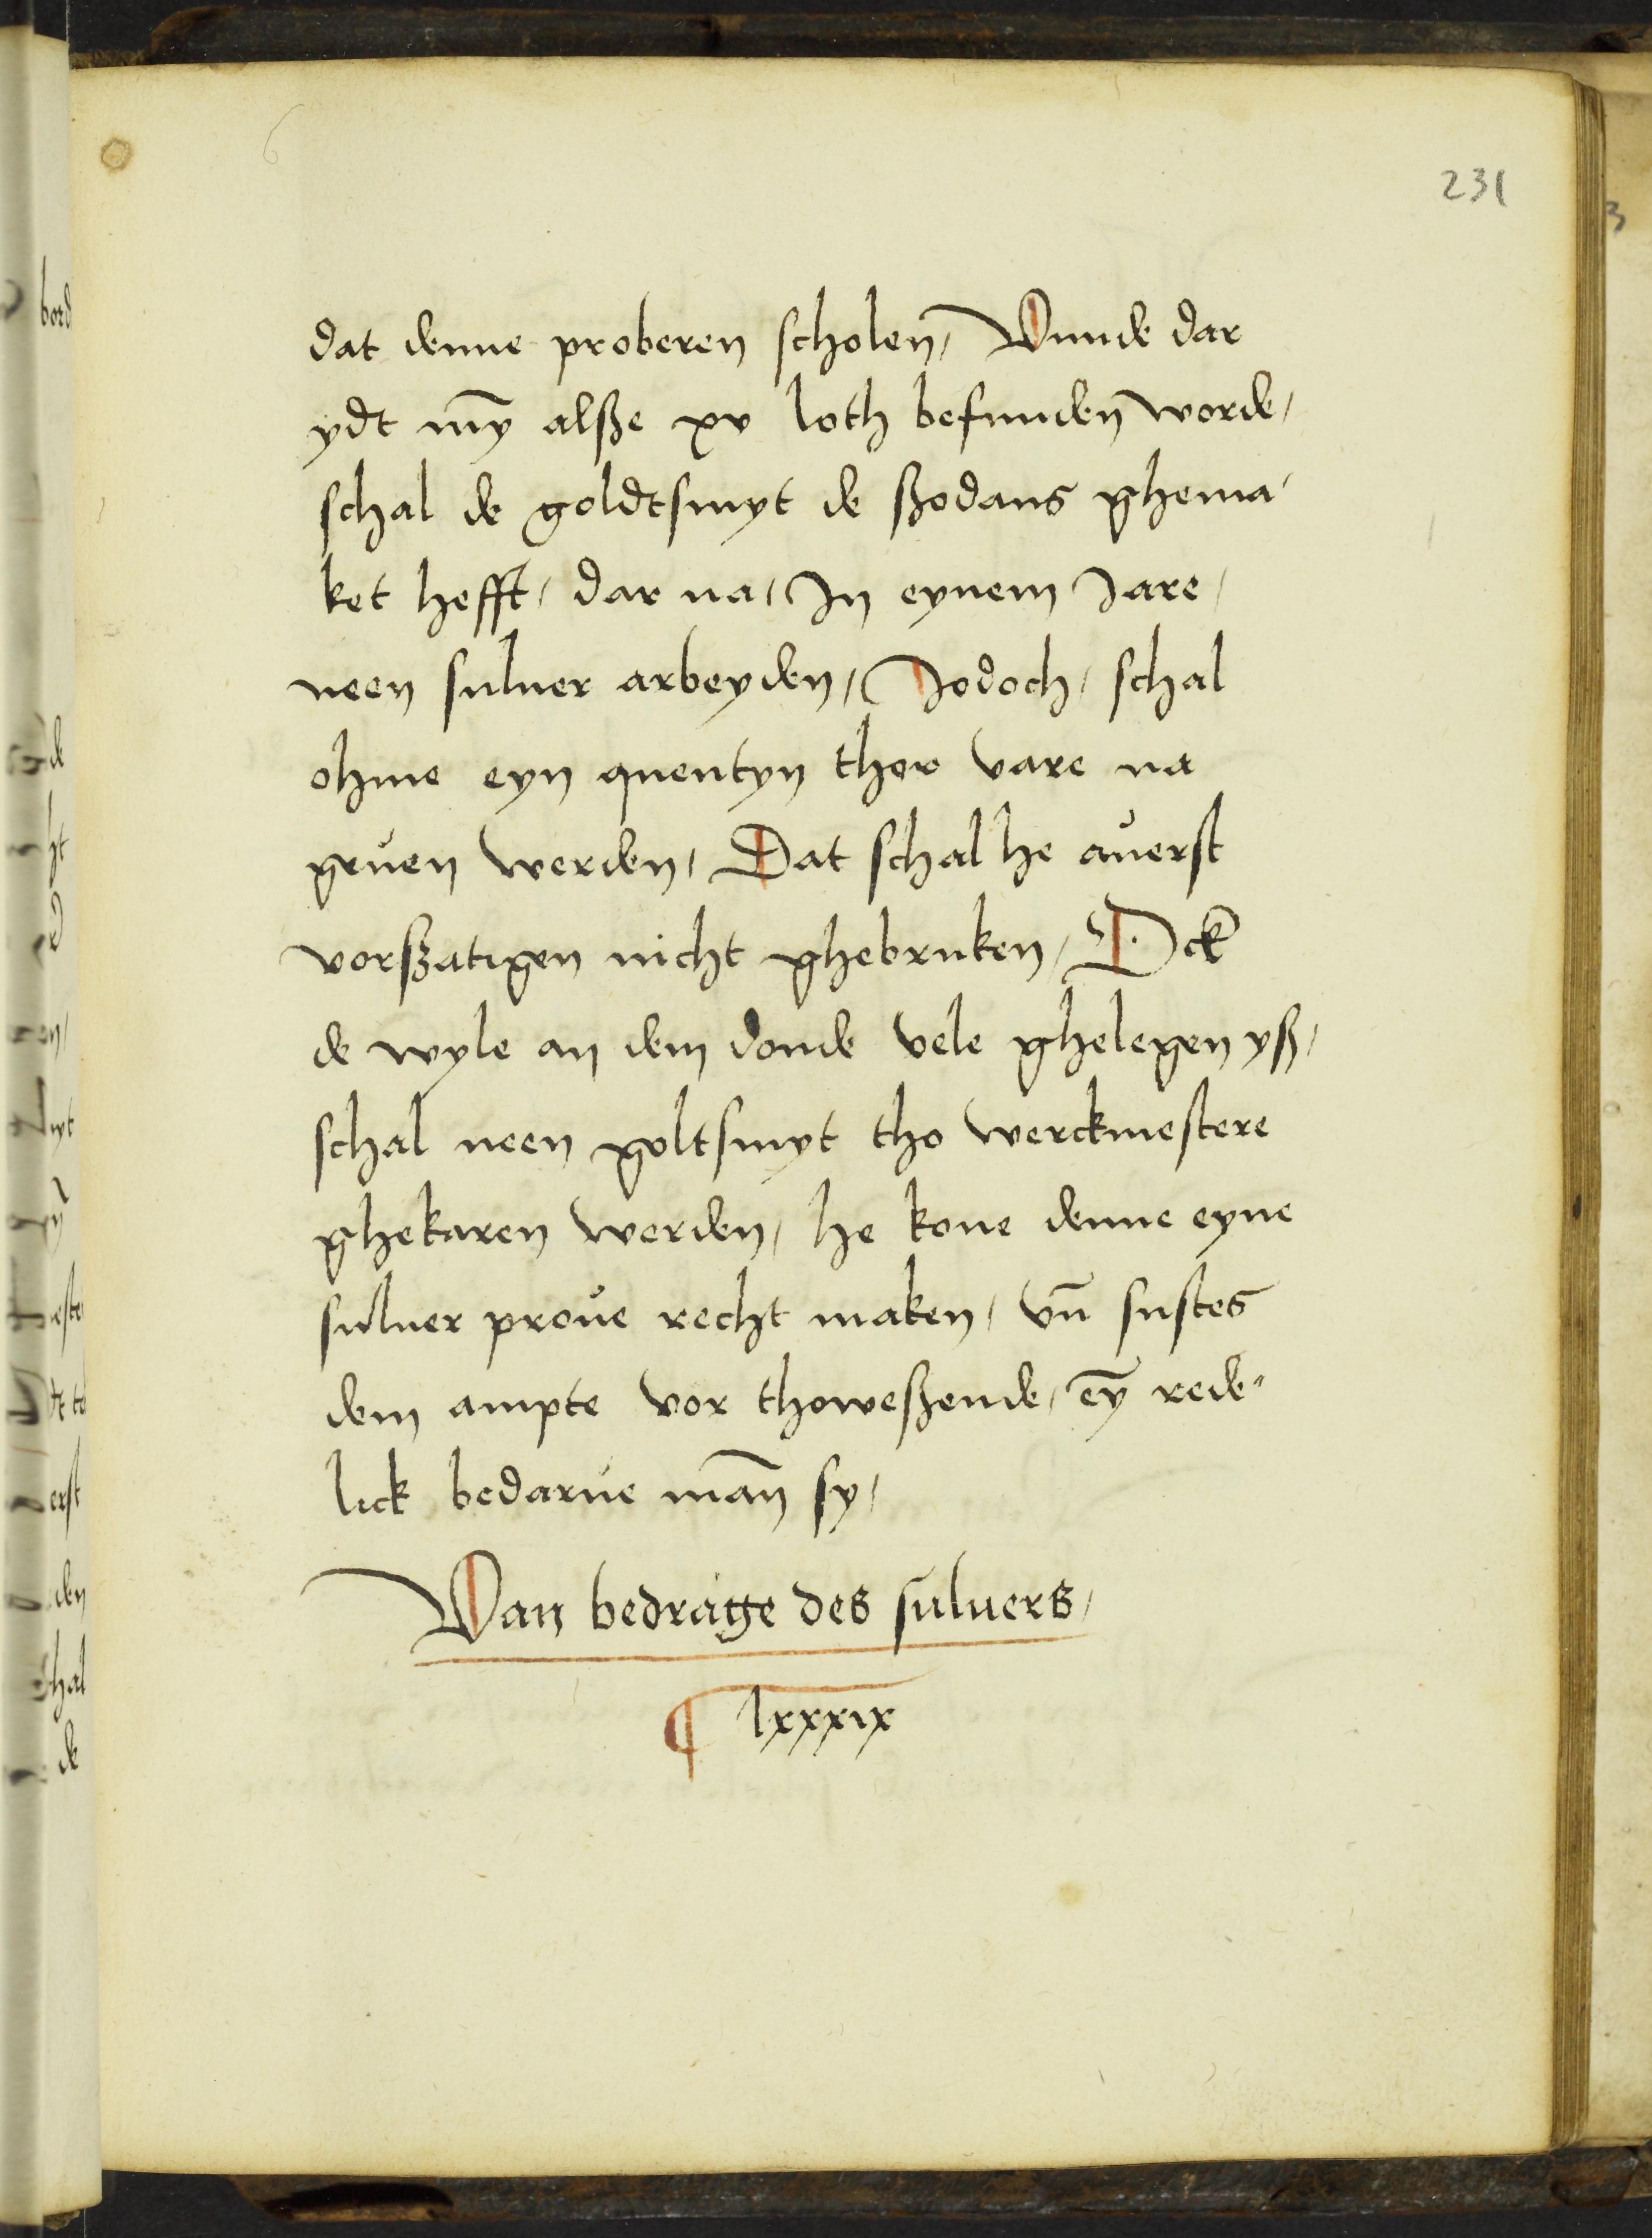 231
dat denne proberen scholen, Vnnde dar
ydt my̅ alße xv loth befunden worde,
schal de goldtsmyt de ßodans ghema-
ket hefft, dar na, In eynem Jare,
neen suluer arbeyden, Jodoch, schal
ohme eyn quentyn thor vare na
geuen werden, Dat schal he auerst
vorßatigen nicht ghebruken, Ock
de wyle an dem donde vele ghelegen yß,
schal neen goltsmyt tho werckmestere
ghekaren werden, he kone denne eyne
suluer proue recht maken, vn̅ sustes
dem ampte vor thoweßende, ey̅ rede-
lick bedarue man̅ sy,
Van bedrage des suluers,
¶ lxxxix